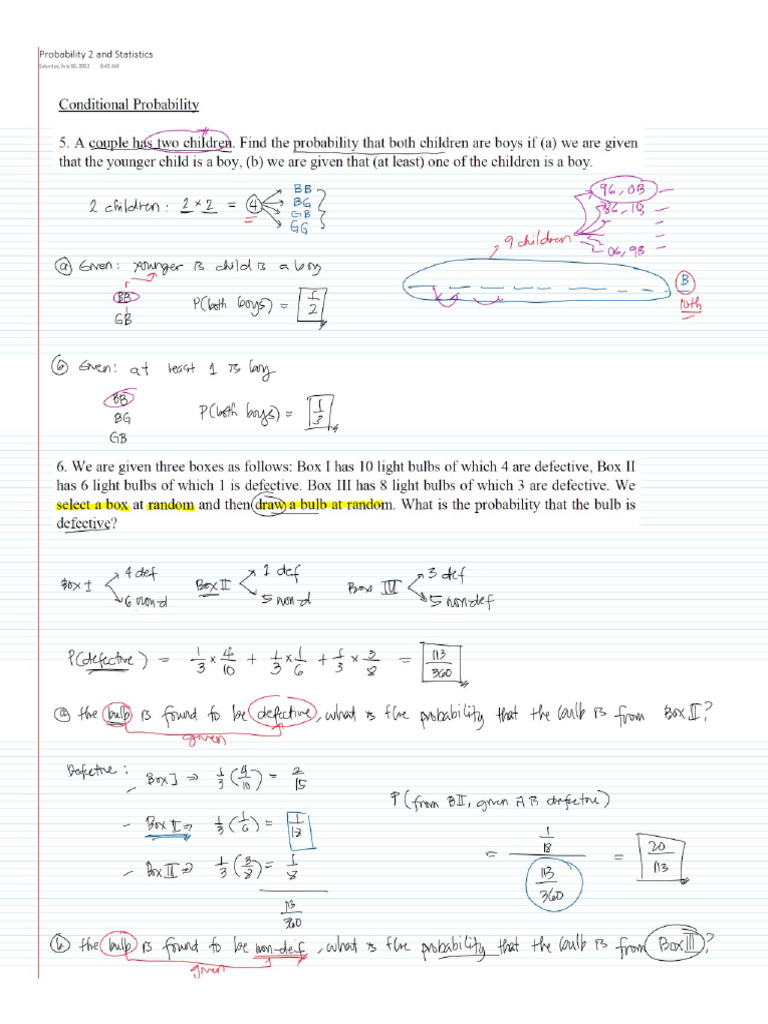 Probability 2 and Statistics
Saturday, July 16, 2022 8:43 AM
Conditional Probability
5. A couple has two children. Find the probability that both children are boys if (a) we are given
that the younger child is a boy, (b) we are given that (at least) one of the children is a boy.
2 children : 2 × 2 = 4
BB
BG
GB
GG
9 children
9G, 0B
8G, 1B
0G, 9B
B
10th
(a) Given: younger is child is a boy
BB
GB
P(both boys) = 1/2
(b) Given: at least 1 is boy
BB
BG
GB
P(both boys) = 1/3
6. We are given three boxes as follows: Box I has 10 light bulbs of which 4 are defective, Box II
has 6 light bulbs of which 1 is defective. Box III has 8 light bulbs of which 3 are defective. We
select a box at random and then draw a bulb at random. What is the probability that the bulb is
defective?
Box I 4 def 6 non-d
Box II 1 def 5 non-d
Box III 3 def 5 non-def
P(defective) = 1/3 × 4/10 + 1/3 × 1/6 + 1/3 × 3/8 = 113/360
(a) the bulb is found to be defective, what is the probability that the bulb is from Box II?
given
Defective :
- Box I ⇒ 1/3 (4/10) = 2/15
- Box II ⇒ 1/3 (1/6) = 1/18
- Box III ⇒ 1/3 (3/8) = 1/8
113/360
P(from BII, given it is defective)
= 1/18 / 113/360 = 20/113
(b) the bulb is found to be non-def, what is the probability that the bulb is from Box III?
given